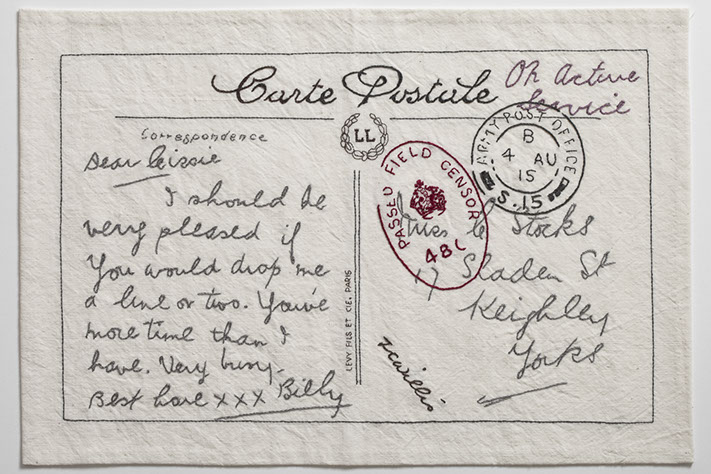 Carte Postale
On Active
Service
ARMY POST OFFICE
B
4 AU
15
S.15
LL
Correspondence
Dear Lizzie
I should be
very pleased if
You would drop me
a line or two. You've
more time than I
have. Very busy.
Best love xxx Billy
LEVY FILS ET CIE, PARIS
PASSED FIELD CENSOR
48
Miss Stocks
17 Sladen St
Keighley
Yorks